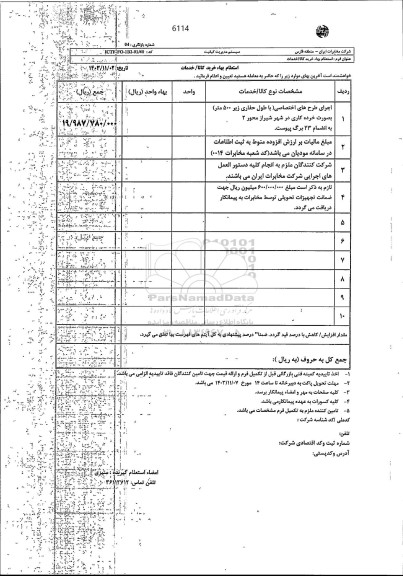 6114
شرکت مخابرات ایران - منطقه فارس
سیستم مدیریت کیفیت
شماره بازنگری: 04
عنوان فرم: استعلام بهاء خرید کالا/خدمات
استعلام بهاء خرید کالا/ خدمات
تاریخ: ۱۴۰۳/۱۱/۰۲
خواهشمند است آخرین بهای موارد زیر را که حاضر به معامله هستید تعیین و اعلام فرمائید.
ردیف
مشخصات نوع کالا/خدمات
واحد
بهاء واحد (ریال)
جمع (ریال)
۱
اجرای طرح های اختصاصی( با طول حفاری زیر ۵۰۰ متر)
بصورت خرده کاری در شهر شیراز محور ۲
به انضمام ۲۳ برگ پیوست.
۱۹/۹۸۷/۷۸۰/۰۰۰
۲
مبلغ مالیات بر ارزش افزوده منوط به ثبت اطلاعات
در سامانه مودیان می باشد(کد شعبه مخابرات ۰۰۱۴)
۳
شرکت کنندگان ملزم به انجام کلیه دستور العمل
های اجرایی شرکت مخابرات ایران می باشند.
۴
لازم به ذکر است مبلغ ۶۰۰/۰۰۰/۰۰۰ میلیون ریال جهت
ضمانت تجهیزات تحویلی توسط مخابرات به پیمانکار
دریافت می گردد.
۵
۶
۷
۸
۹
۱۰
ParsNamadData
مقدار افزایش/ کاهش با درصد قید گردد. ضمنا" درصد پیشنهادی به کل آیتم های فهرست بها تعلق می گیرد.
جمع کل به حروف (به ریال ):
۱- اخذ تاییدیه کمیته فنی بازرگانی قبل از تکمیل فرم و ارائه قیمت جهت تامین کنندگان فاقد تاییدیه الزامی می باشد.
۲- مهلت تحویل پاکت به دبیرخانه تا ساعت ۱۴ مورخ ۱۴۰۳/۱۱/۰۴ می باشد.
۳- کلیه صفحات به مهر و امضاء پیمانکار برسد.
۴- کلیه کسورات به عهده پیمانکار می باشد.
۵- تامین کننده ملزم به تکمیل فرم مشخصات می باشد.
کدملی /کد شناسه شرکت :
تلفن:
شماره ثبت وکد اقتصادی شرکت:
آدرس وکدپستی:
امضاء استعلام گیرنده :
تلفن تماس: ۳۶۱۱۳۶۱۲